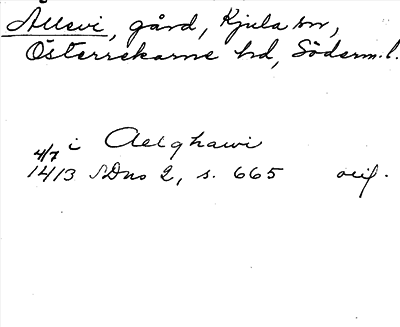 Ållevi, gård, Kjula sn,
Österrekarne hd, Söderm.l.
i Aelghawi
4/7
1413 SDns 2, s. 665 orig.